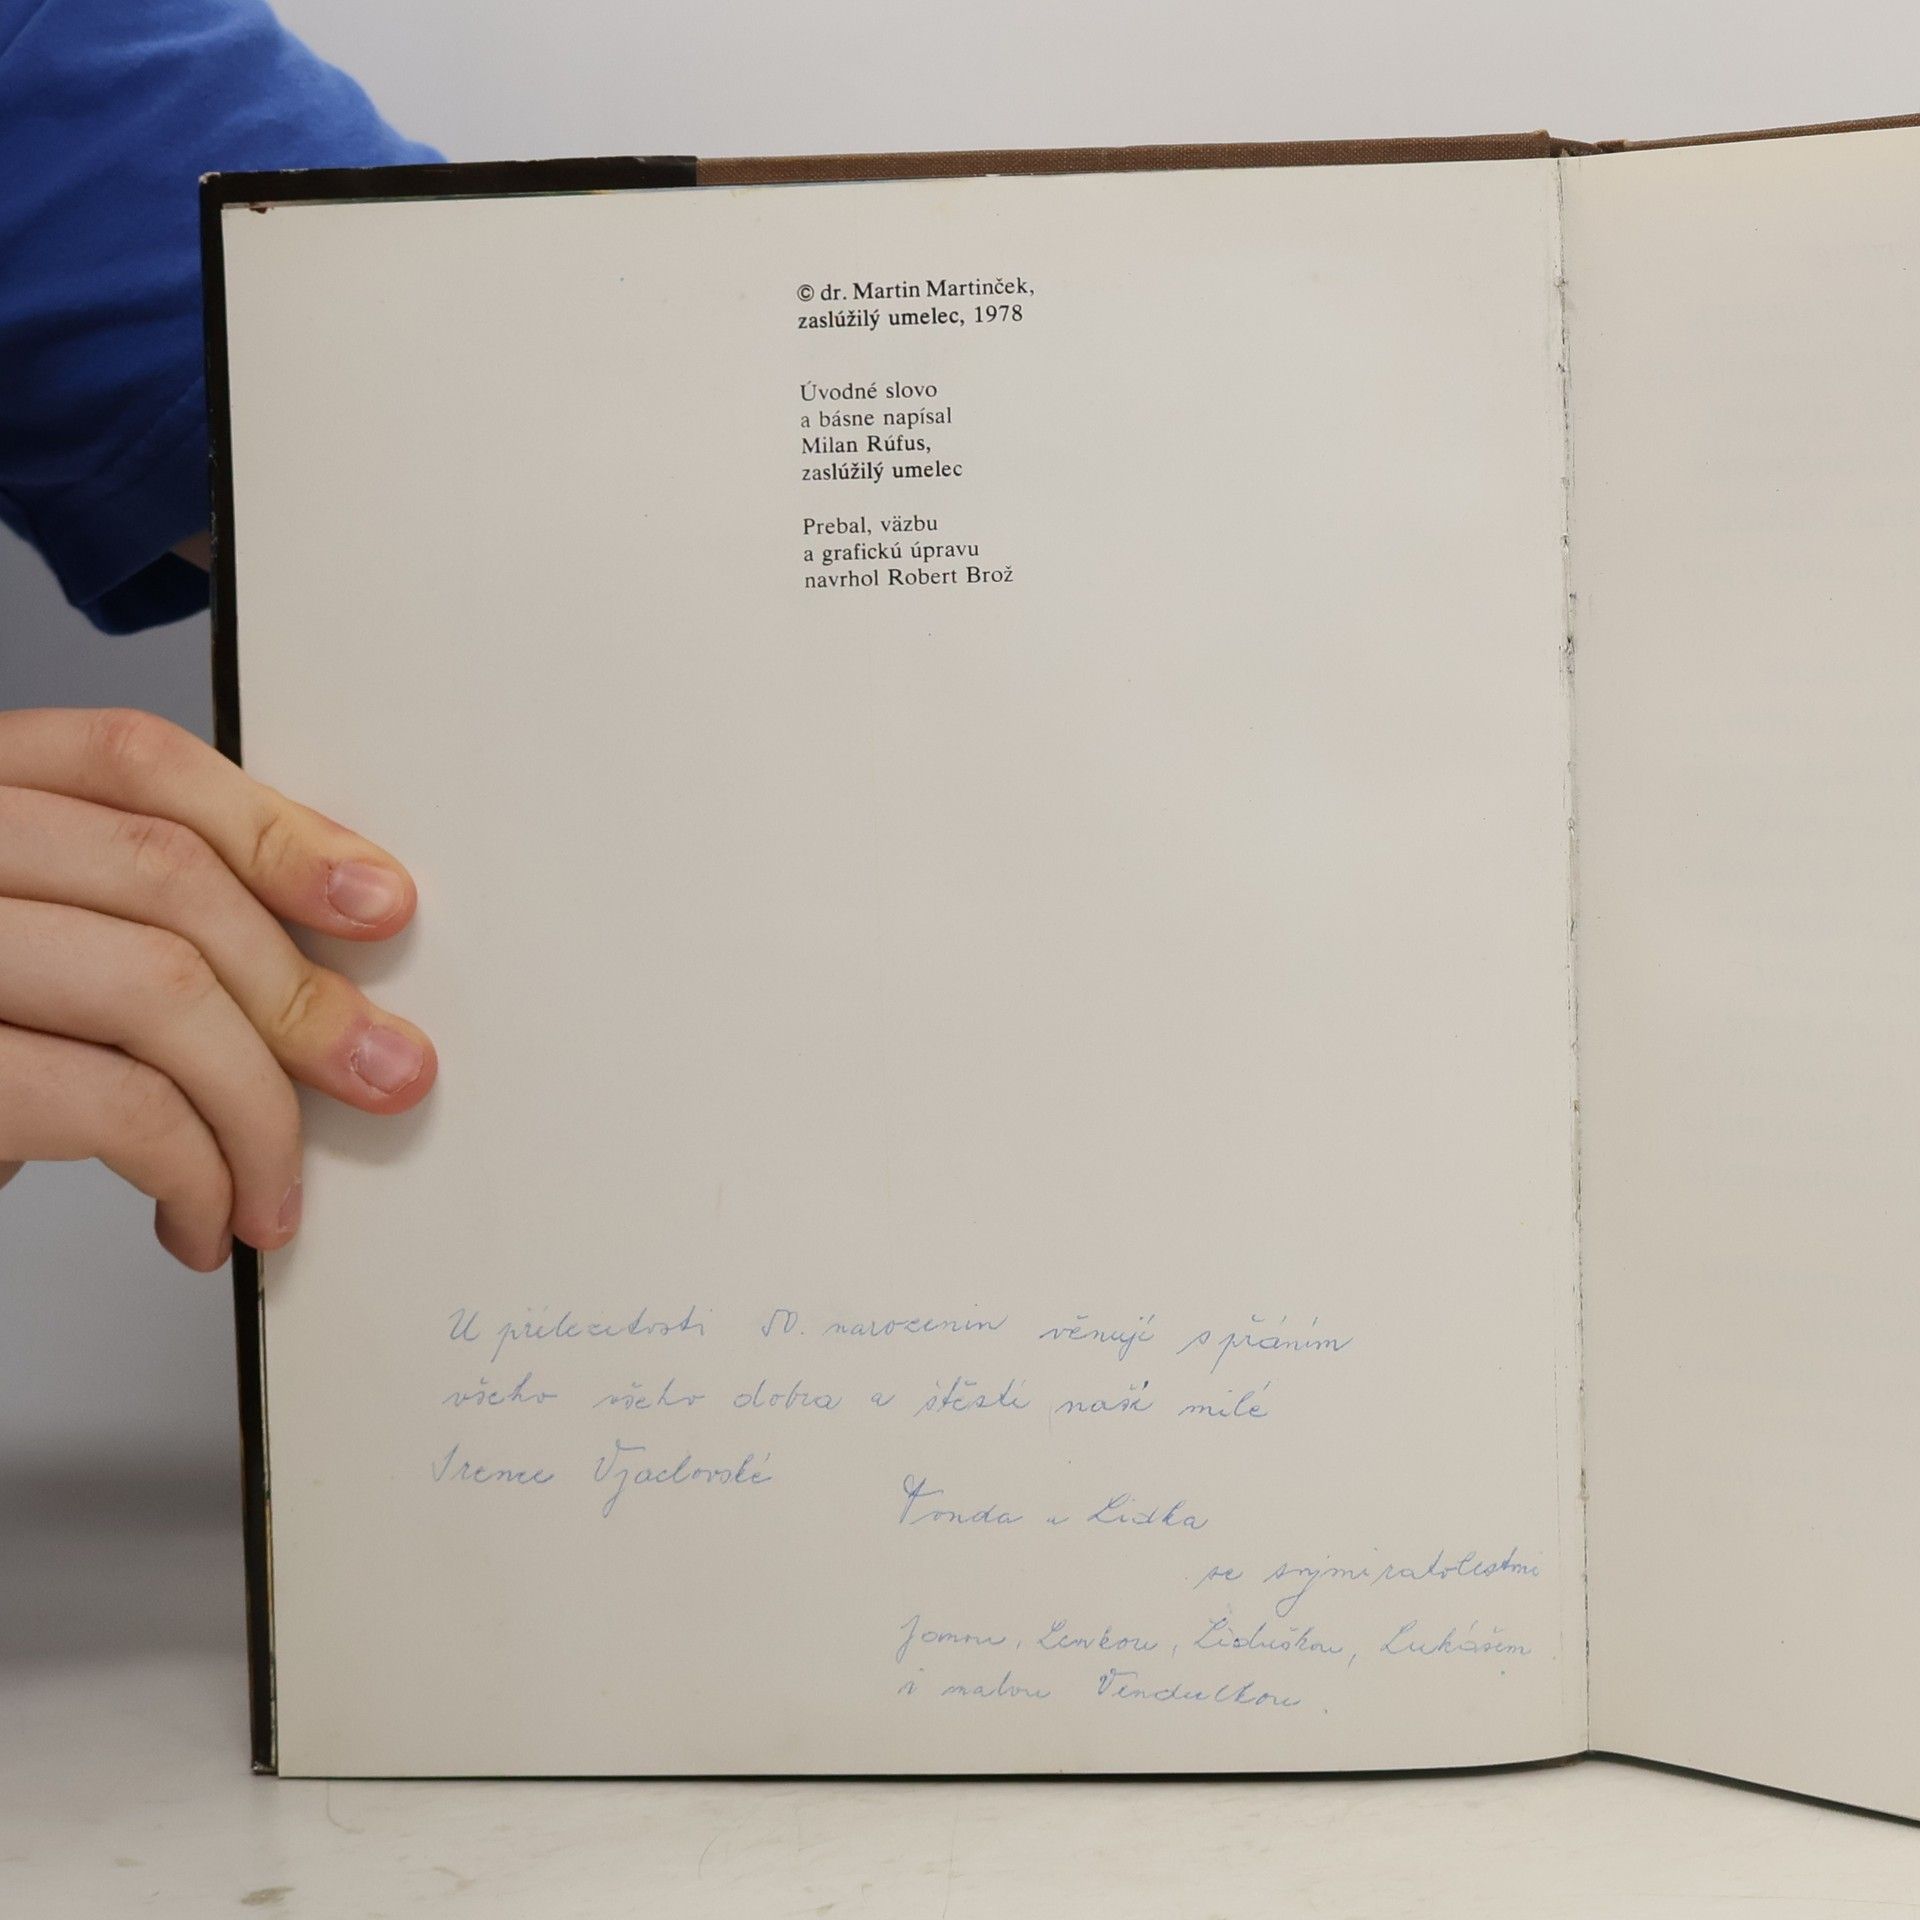 © dr. Martin Martinček,
zaslúžilý umelec, 1978
Úvodné slovo
a básne napísal
Milan Rúfus,
zaslúžilý umelec
Prebal, väzbu
a grafickú úpravu
navrhol Robert Brož
U příležitosti 50. narozenin věnují s přáním
všeho všeho dobra a štěstí naší milé
Irence
Tonda a Lidka
se svými ratolestmi
Janou, Lenkou, Liduškou, Lukášem
i malou Vendulkou.